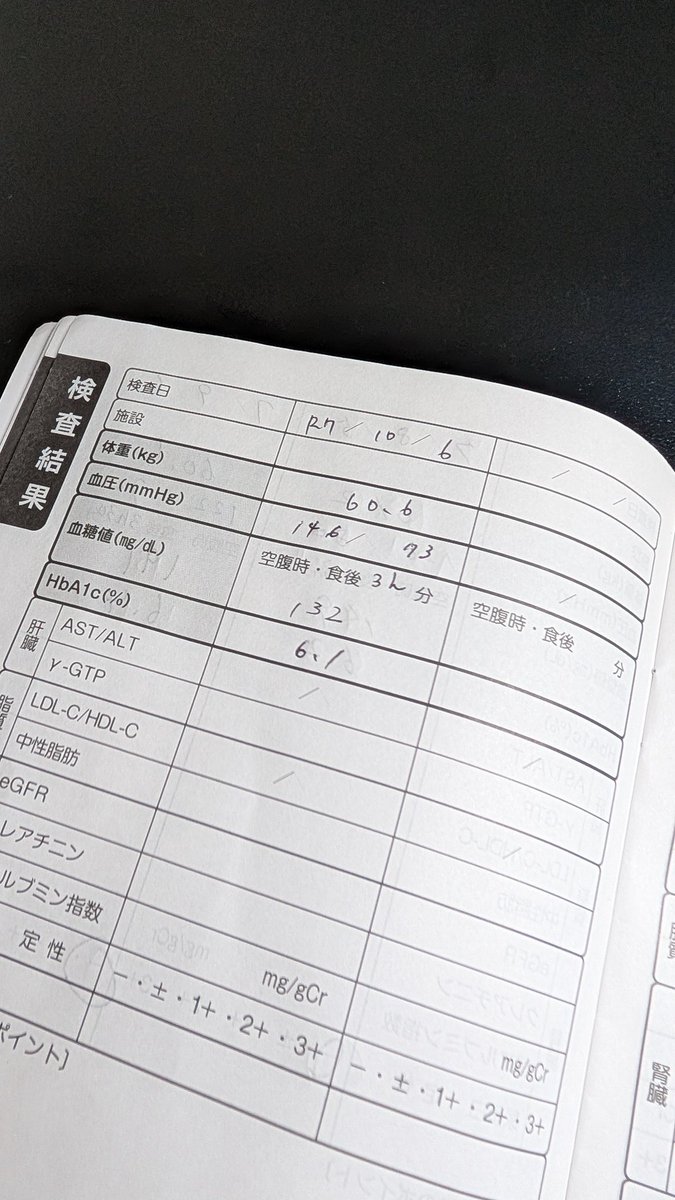 検査結果
検査日 R7/10/6 / /
施設
体重(kg) 60.6
血圧(mmHg) 146/93 /
血糖値(mg/dL) 空腹時・食後 3h 分 空腹時・食後 分
132
HbA1c(%) 6.1
肝臓 AST/ALT /
γ-GTP
脂質 LDL-C/HDL-C /
中性脂肪
eGFR
レアチニン
ルブミン指数 mg/gCr mg/gCr
定性 −・±・1+・2+・3+ −・±・1+・2+・3+
ポイント]
腎臓